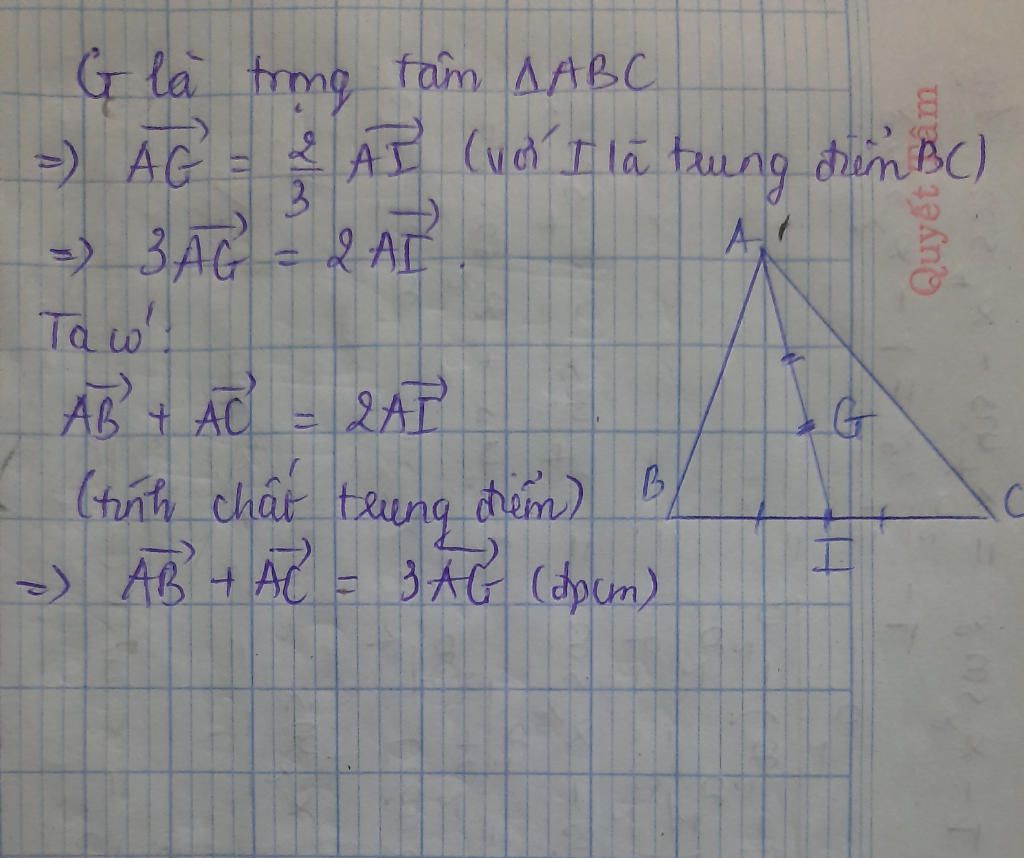 G là trọng tâm ΔABC
=> AG→ = 2/3 AI→ (với I là trung điểm BC)
=> 3AG→ = 2AI→.
Ta có:
AB→ + AC→ = 2AI→
(tính chất trung điểm)
=> AB→ + AC→ = 3AG→ (đpcm)
A
G
B
C
I
Quyết tâm